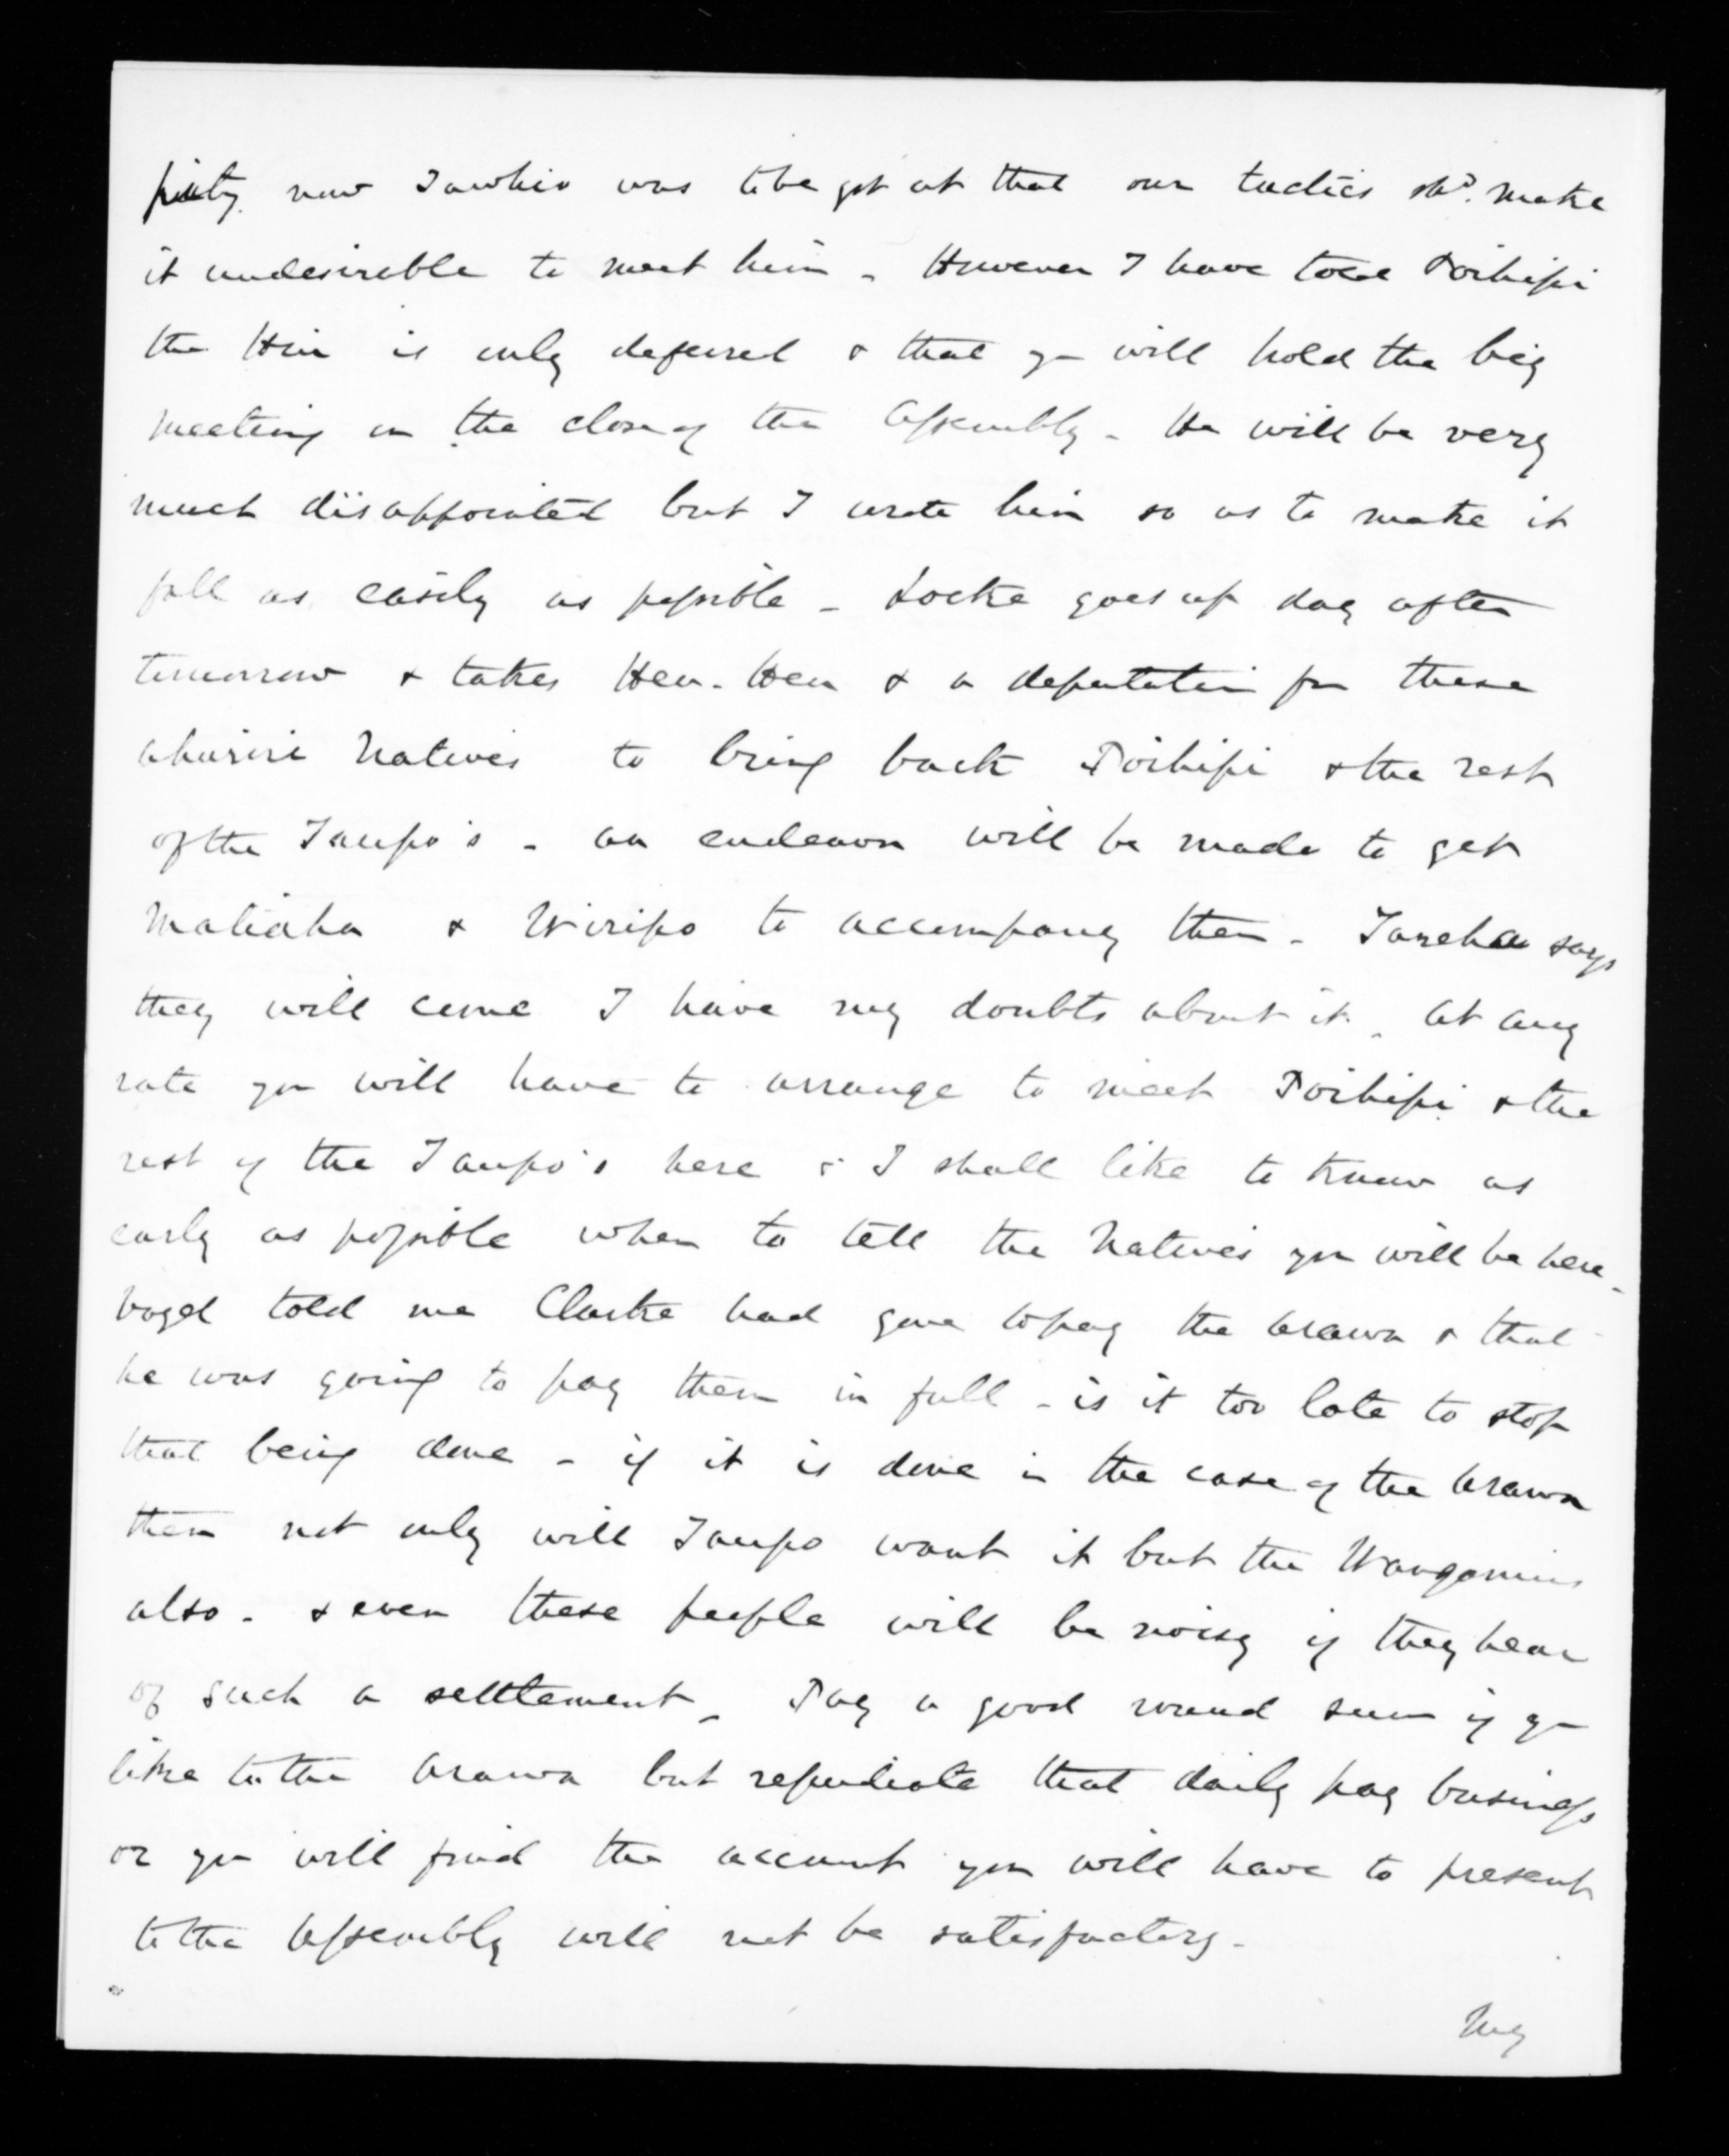 pity now Tawhio was to be got at that our tactics shd. make
it undesireble to meet him - However I have told Poihipi
the Hui is only deferred & that you will hold the big
meeting on the close of the Assembly - He will be very
much disappointed but I wrote him so as to make it
fall as easily as possible - Locke goes up day after
tomorrow & takes Hen. Hen & a deputation fm these
Ahuriri Natives to bring back Poihipi & the rest
of the Taupo's - an endeavor will be made to get
Matiaha & Wiripo to accompany them - Tareha says
they will come I have my doubts about it - At any
rate you will have to arrange to meet Poihipi & the
rest of the Taupo's here & I shall like to know as
early as possible when to tell the Natives you will be here -
Vogel told me Clarke had gone to pay the Arawa & that
he was going to pay them in full - is it too late to stop
that being done - if it is done in the case of the Arawa
then not only will Taupo want it but the Wanganuis
also - & even these people will be noisy if they hear
of such a settlement - Pay a good round sum if you
like to the Arawa but repudiate that daily pay business
or you will find the account you will have to present
to the Assembly will not be satisfactory -
My